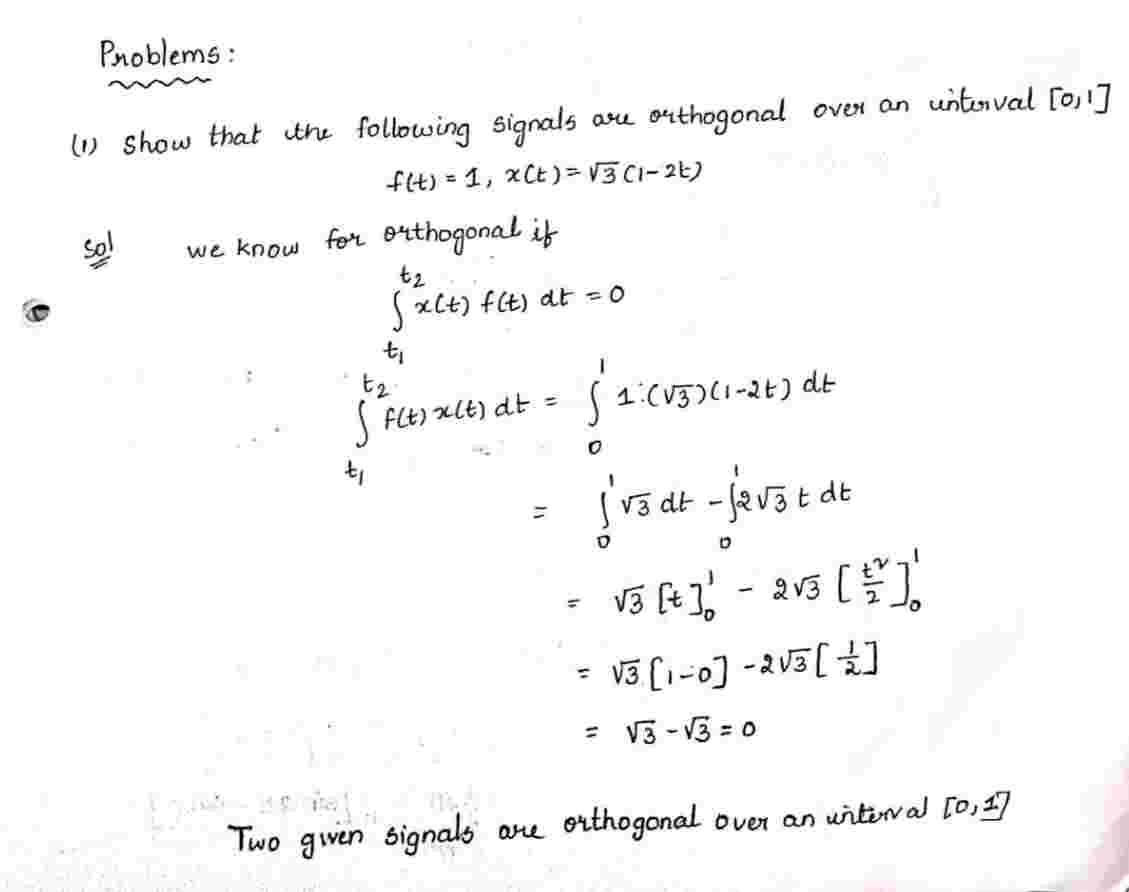 Problems:
(1) Show that the following signals are orthogonal over an interval [0,1]
f(t) = 1, x(t) = √3 (1-2t)
Sol we know for orthogonal if
∫_{t1}^{t2} x(t) f(t) dt = 0
∫_{t1}^{t2} f(t) x(t) dt = ∫_0^1 1·(√3)(1-2t) dt
= ∫_0^1 √3 dt - ∫_0^1 2√3 t dt
= √3 [t]_0^1 - 2√3 [t²/2]_0^1
= √3 [1-0] - 2√3 [1/2]
= √3 - √3 = 0
Two given signals are orthogonal over an interval [0,1]